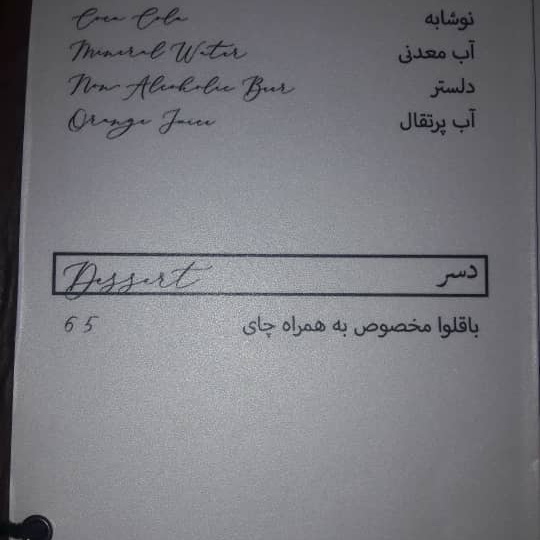 Coca Cola نوشابه
Mineral Water آب معدنی
Non Alcoholic Beer دلستر
Orange Juice آب پرتقال
Dessert دسر
65 باقلوا مخصوص به همراه چای